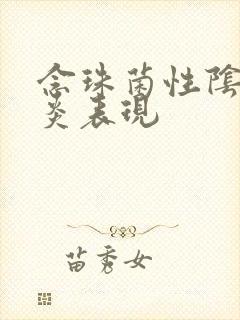 念珠菌性陰
炎表現
苗秀女